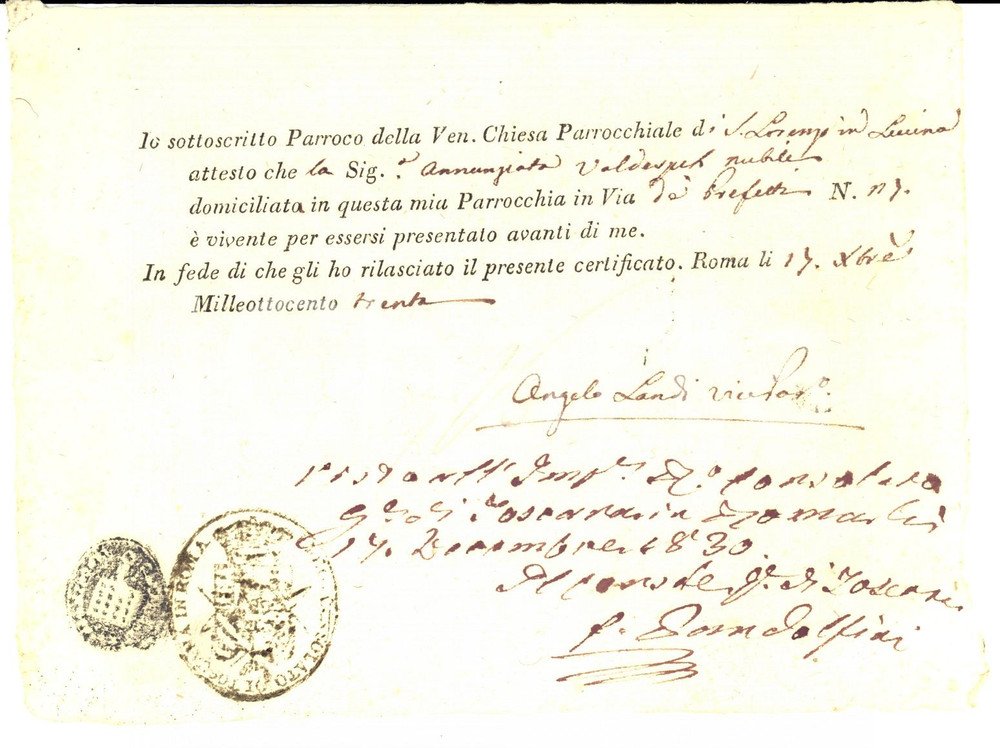 Io sottoscritto Parroco della Ven. Chiesa Parrocchiale di S. Lorenzo in Lucina
attesto che la Sig.ª Annunziata Valdespek nubile
domiciliata in questa mia Parrocchia in Via de Prefetti N. 17.
è vivente per essersi presentato avanti di me.
In fede di che gli ho rilasciato il presente certificato. Roma li 17. Xbre
Milleottocento trenta
Angelo Landi vicePar.º
Visto all' Imp. R. Consolato
Gle di Toscana in Roma li
17. Decembre 1830.
Il Console Gle di Toscana
P. Pandolfini
CONSOLATO DI TOSCANA IN ROMA